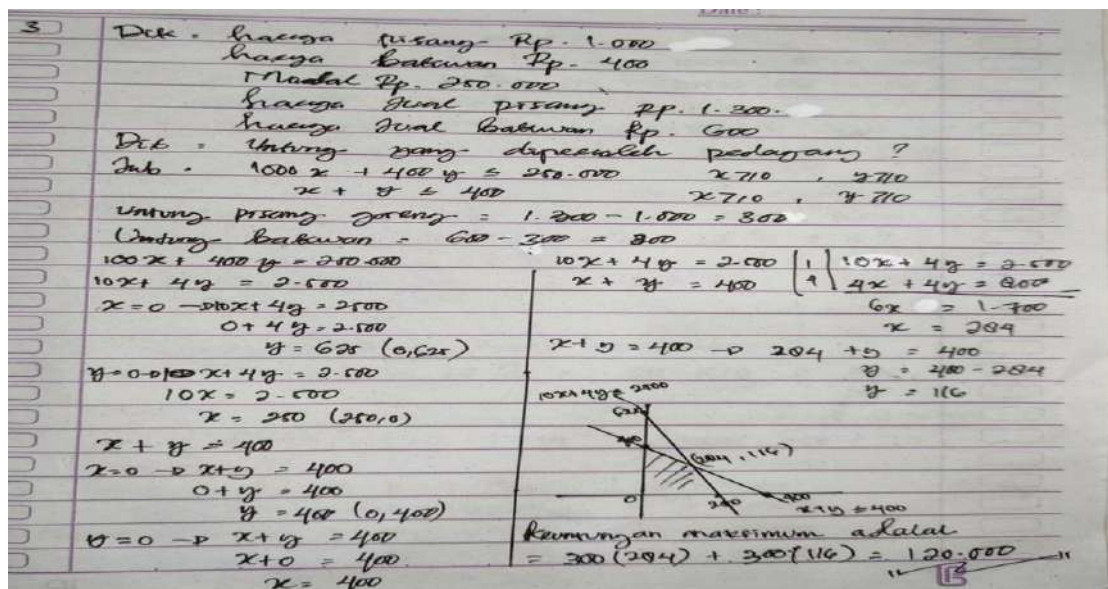 3 Dik = harga pisang Rp. 1.000
harga bakwan Rp. 400
Modal Rp. 250.000
harga jual pisang Rp. 1.300.
harga jual bakwan Rp. 600
Dit = Untung yang diperoleh pedagang ?
Jwb. 1000 x + 400 y ≤ 250.000 x ≥ 0 , y ≥ 0
x + y ≤ 400 x ≥ 0 , y ≥ 0
Untung pisang goreng = 1.300 - 1.000 = 300
Untung bakwan = 600 - 300 = 300
100 x + 400 y = 250.000
10x + 4y = 2.500
x = 0 → 10x + 4y = 2500
0 + 4y = 2.500
y = 625 (0,625)
y = 0 → 10x + 4y = 2.500
10x = 2.500
x = 250 (250,0)
x + y = 400
x = 0 → x + y = 400
0 + y = 400
y = 400 (0,400)
y = 0 → x + y = 400
x + 0 = 400
x = 400
10x + 4y = 2.500 | 1 | 10x + 4y = 2.500
x + y = 400 | 4 | 4x + 4y = 800
6x = 1.700
x = 284
x + y = 400 → 284 + y = 400
y = 400 - 284
y = 116
10x + 4y = 2500
625
400
(284, 116)
0 250 400
x + y = 400
Keuntungan maksimum adalah
= 300 (284) + 300 (116) = 120.000